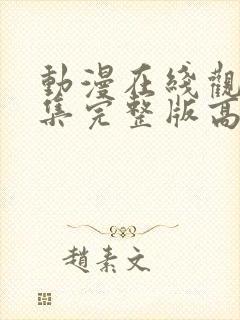 動漫在綫觀
集完整版高
趙素文